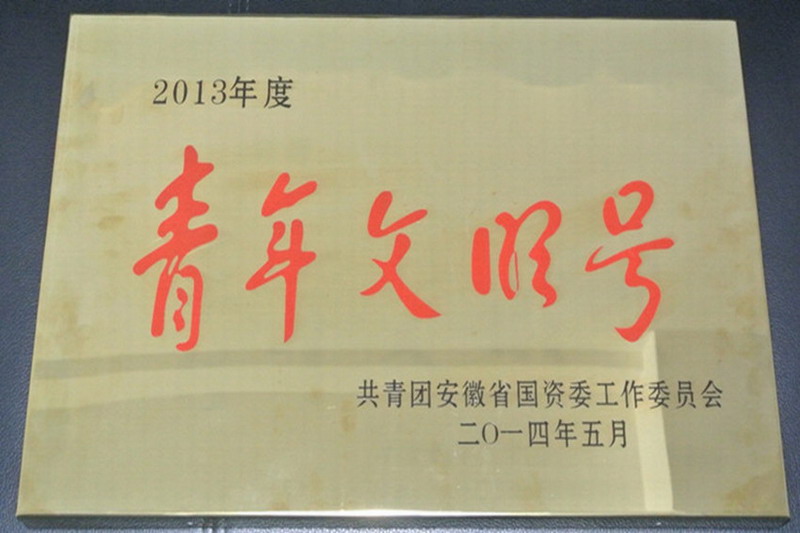 2013年度
青年文明号
共青团安徽省国资委工作委员会
二〇一四年五月